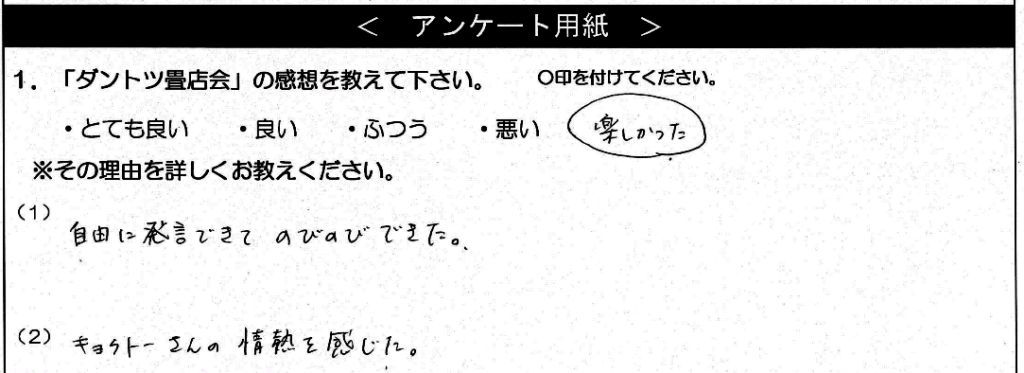 ＜ アンケート用紙 ＞
1．「ダントツ畳店会」の感想を教えて下さい。 〇印を付けてください。
・とても良い ・良い ・ふつう ・悪い 楽しかった
※その理由を詳しくお教えください。
(1)
自由に発言できて のびのびできた。
(2) キョウトーさんの 情熱を感じた。